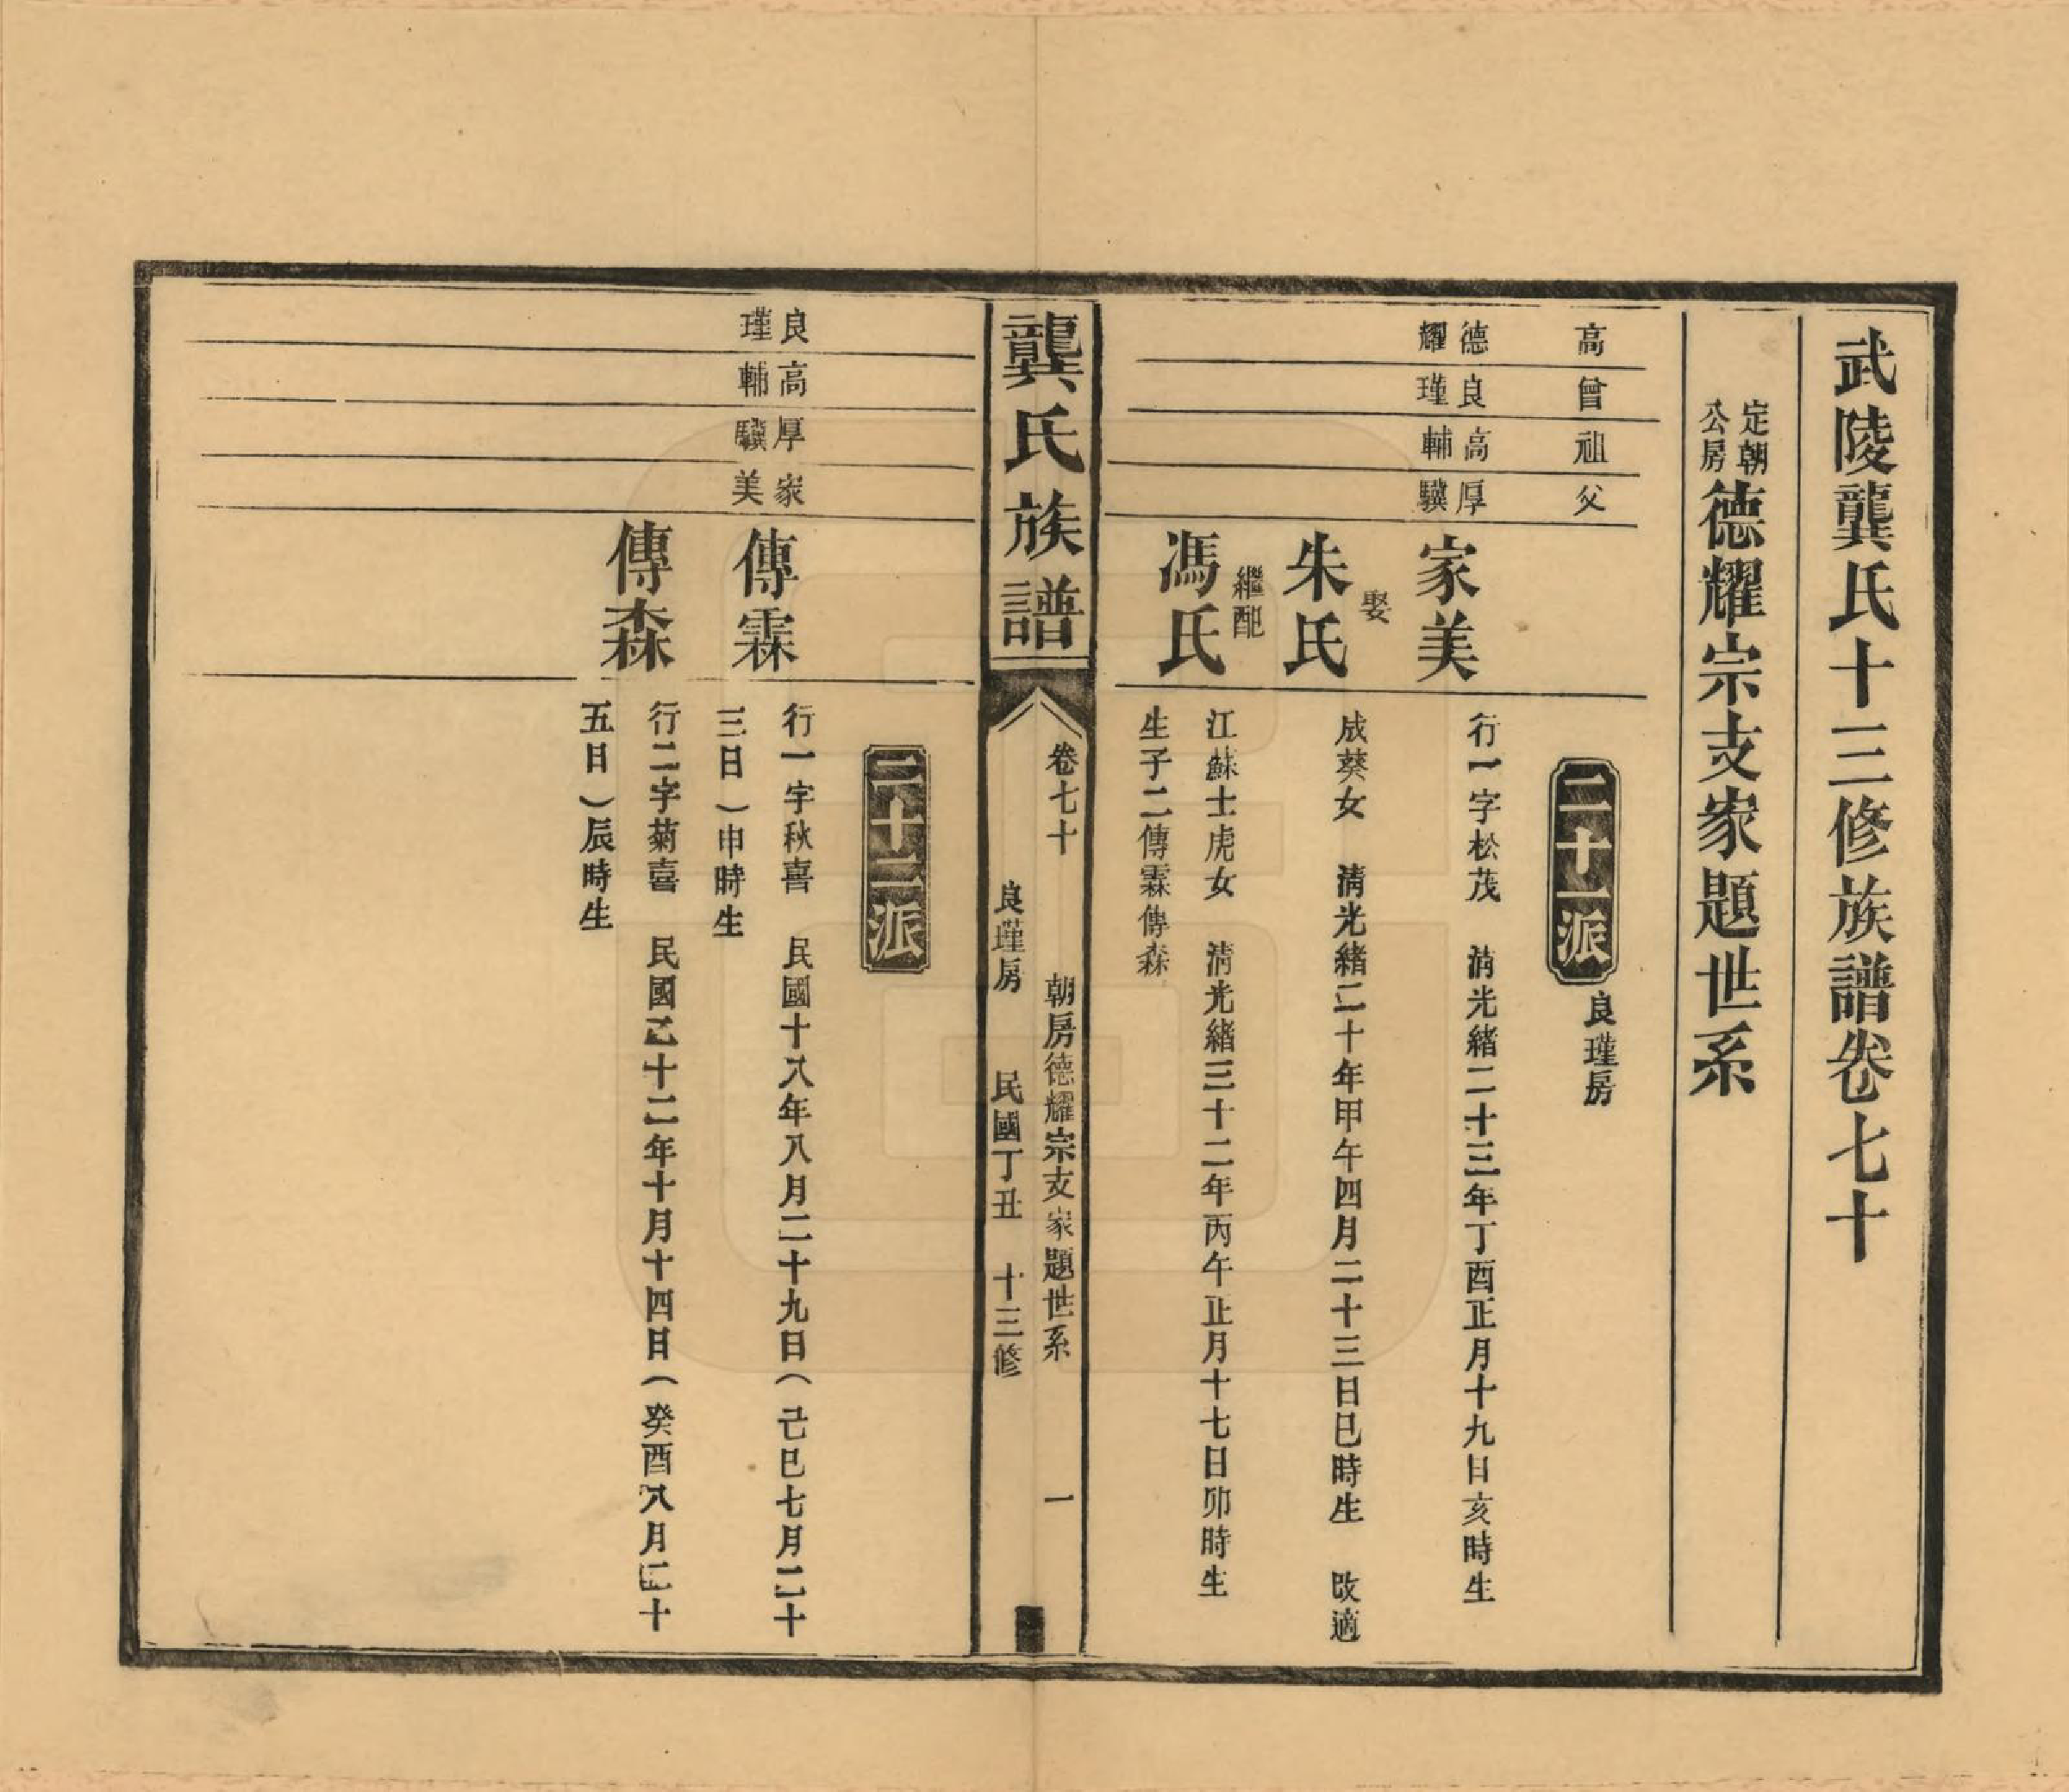 武陵龔氏十三修族譜卷七十
定朝公房德耀宗支家題世系
高
曾
祖
父
二十一派
良瑾房
德耀
良瑾
高輔
厚驥
家美
行一字松茂　清光緒二十三年丁酉正月十九日亥時生
娶
朱氏
成葵女　清光緒二十年甲午四月二十三日巳時生　改適
繼配
馮氏
江蘇士虎女　清光緒三十二年丙午正月十七日卯時生
生子二傳霖傳森
龔氏族譜
卷七十
朝房德耀宗支家題世系
一
良瑾房　民國丁丑　十三修
二十二派
良瑾
高輔
厚驥
家美
傳霖
行一字秋喜　民國十八年八月二十九日（己巳七月二十
三日）申時生
傳森
行二字菊喜　民國二十二年十月十四日（癸酉八月二十
五日）辰時生